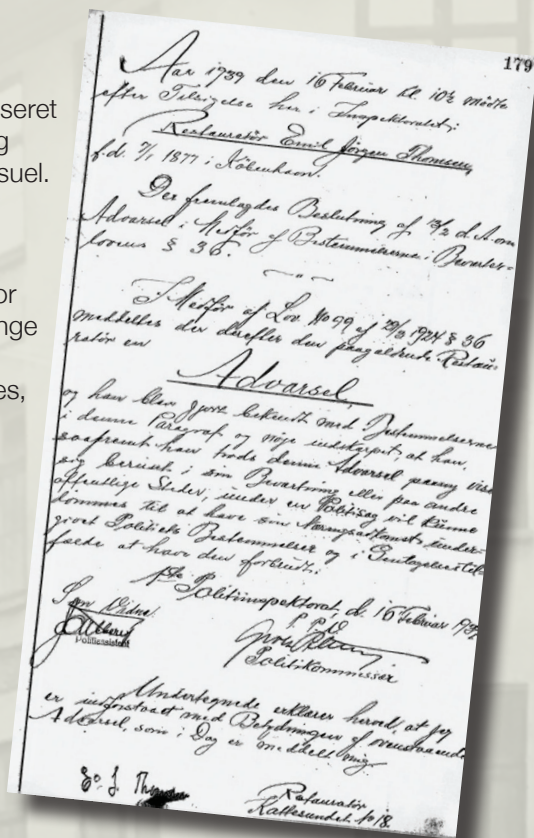 seret
g
suel.
or
nge
es,
179
Aar 1939 den 16 Februar Kl. 10½ mødte
efter Tilsigelse her i Inspektoratet:
Restauratør Emil Jørgen Thomsen,
f.d. 7/1 1877 i København.
Der fremlagdes Beslutning af 13/2 d.A. om
Advarsel i Medfør af Bestemmelserne i Beværter-
lovens § 36.
I Medfør af Lov No 99 af 29/3 1924 § 36
meddeltes der derefter den paagældende Restau-
ratør en
Advarsel,
og han blev gjort bekendt med Bestemmelserne
i denne Paragraf og nøje indskærpet, at han,
saafremt han trods denne Advarsel paany viser
sig beruset i sin Beværtning eller paa andre
offentlige Steder, under en Politisag vil kunne
dømmes til at have sin Næringsadkomst under-
givet Politiets Bestemmelser og i Gentagelsestil-
fælde at have den forbrudt.
Politiinspektorat, d. 16 Februar 1939
P.P.V.
Som Vidne:
Politiassistent
Politikommissær
Undertegnede erklærer herved, at jeg
er indforstaaet med Betydningen af ovenstaaende
Advarsel, som i Dag er meddelt mig.
E. J. Thomsen
Restauratør
Kattesundet No 18